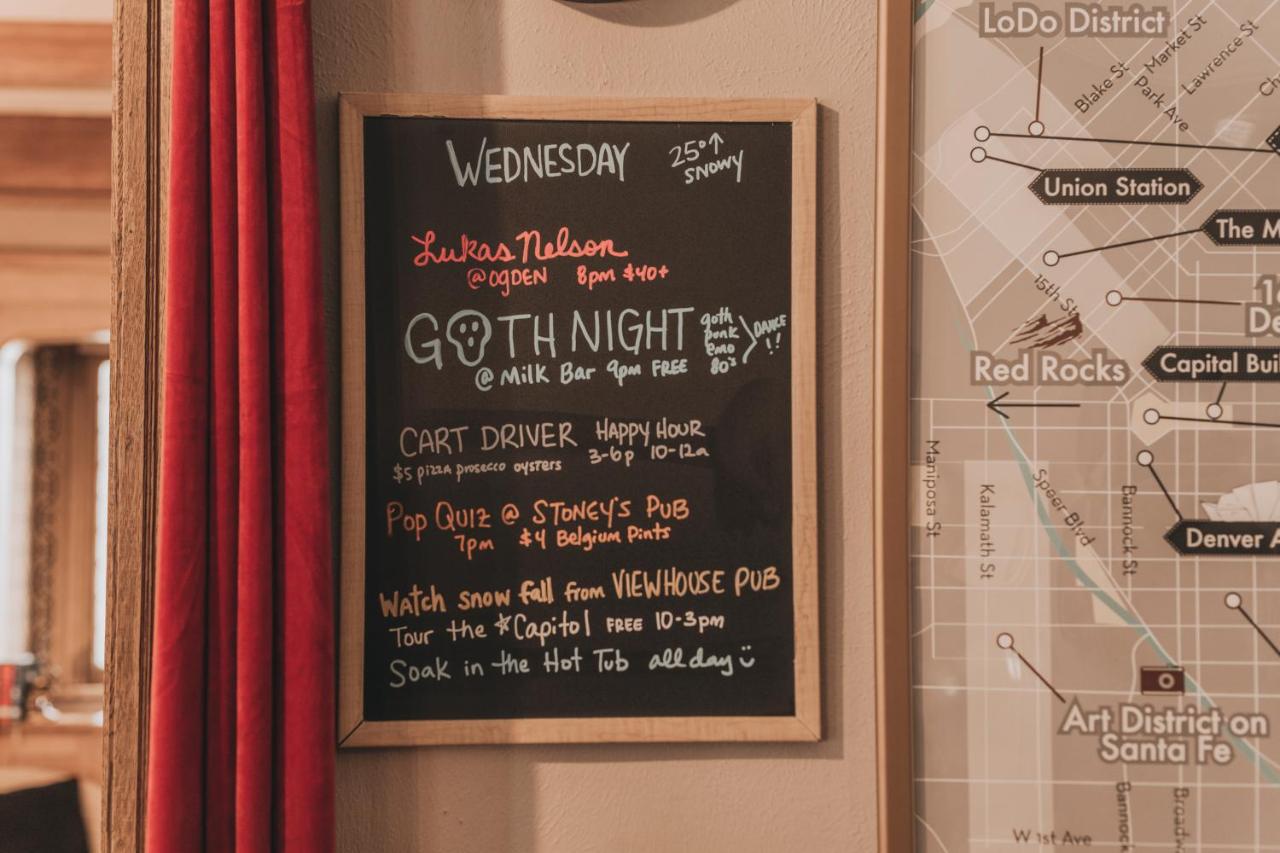 WEDNESDAY
25°↑
SNOWY
Lukas Nelson
@OGDEN 8pm $40+
GOTH NIGHT
goth
punk
emo
80's
DANCE
!!
@ Milk Bar 9pm FREE
CART DRIVER HAPPY HOUR
$5 pizza prosecco oysters 3-6p 10-12a
Pop Quiz @ STONEY'S PUB
7pm $4 Belgium Pints
Watch snow fall from VIEWHOUSE PUB
Tour the *Capitol FREE 10-3pm
Soak in the Hot Tub all day
LoDo District
Market St
Blake St
Lawrence St
Park Ave
Union Station
The M
15th St
Red Rocks
Capital Bui
Mariposa St
Kalamath St
Speer Blvd
Bannock St
Denver A
Art District on
Santa Fe
Bannock
Broadw
W 1st Ave